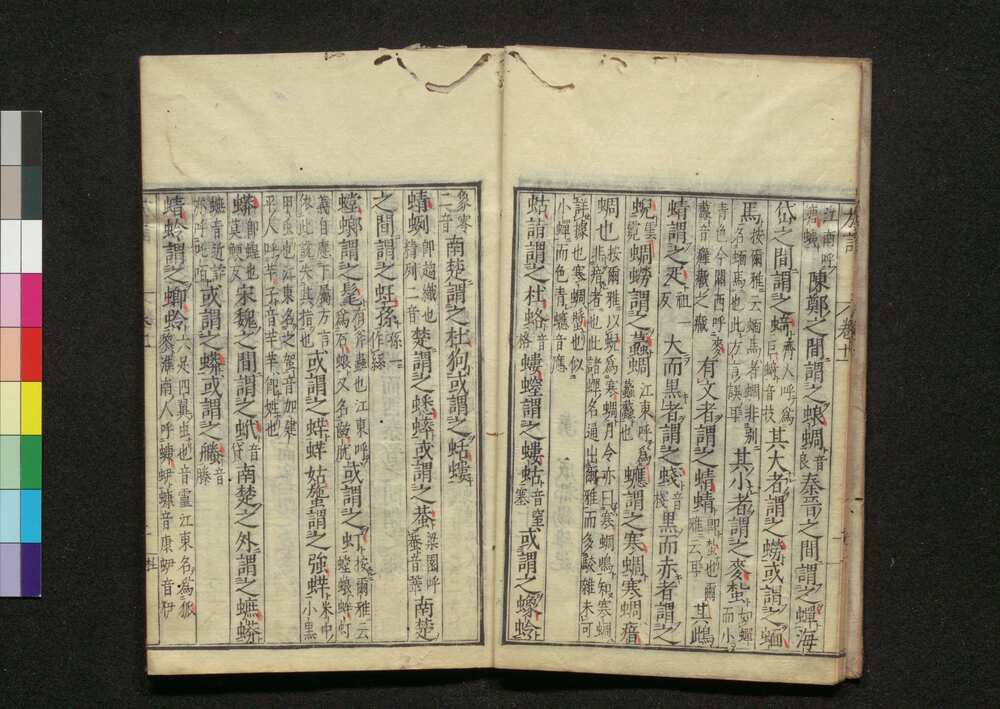 江南呼螗蛦陳鄭之間謂之蜋蜩音良秦晉之間謂之蟬海
岱之間謂之䗁齊人呼爲巨䗁音技其大者謂之蟧或謂之蝒
馬按爾雅云蝒馬者蜩非別名蝒馬也此方言誤耳其小者謂之麥蚻如蟬而小
青色今關西呼麥䘁音癰癤之癤有文者謂之蜻蜻即蚻也爾雅云耳其鴜
蜻謂之疋祖一反大而黑者謂之䗃音棧黑而赤者謂之
蜺雲霓蜩蟧謂之蠽蜩江東呼爲蠽蠽也䗐謂之寒蜩寒蜩瘖
蜩也按爾雅以蜺爲寒蜩月令亦曰寒蜩鳴知寒蜩非瘖者也此諸蟬名通出爾雅而多駮雜未可
詳據也寒蜩螿也似小蟬而色青䗐音應
蛄䚽謂之杜蛒音格螻螲謂之螻蛄音窒塞或謂之蟓蛉
象零二音南楚謂之杜狗或謂之蛞螻
蜻蛚即趨織也精列二音楚謂之蟋蟀或謂之蛬梁園呼蛬音鞏南楚
之間謂之蚟孫孫一作絲
螳螂謂之髦有斧蟲也江東呼爲石蜋又名齕肬或謂之虰按爾雅云螳蜋蛑虰
義自應下屬方言依此説失其指也或謂之蛘蛘姑䗯謂之強蛘米中小黑
甲蟲也江東名之䖠音加建平人呼蛘子音芊芊即姓也
蟒即蝗也莫鯁反宋魏之間謂之蚮音貸南楚之外謂之蟅蟒
蟅音近詐亦呼虴蛨或謂之蟒或謂之螣音滕
蜻蛉謂之蝍蛉六足四翼蟲也音靈江東名爲狐黎淮南人呼蠊𧊅蠊音康𧊅音伊